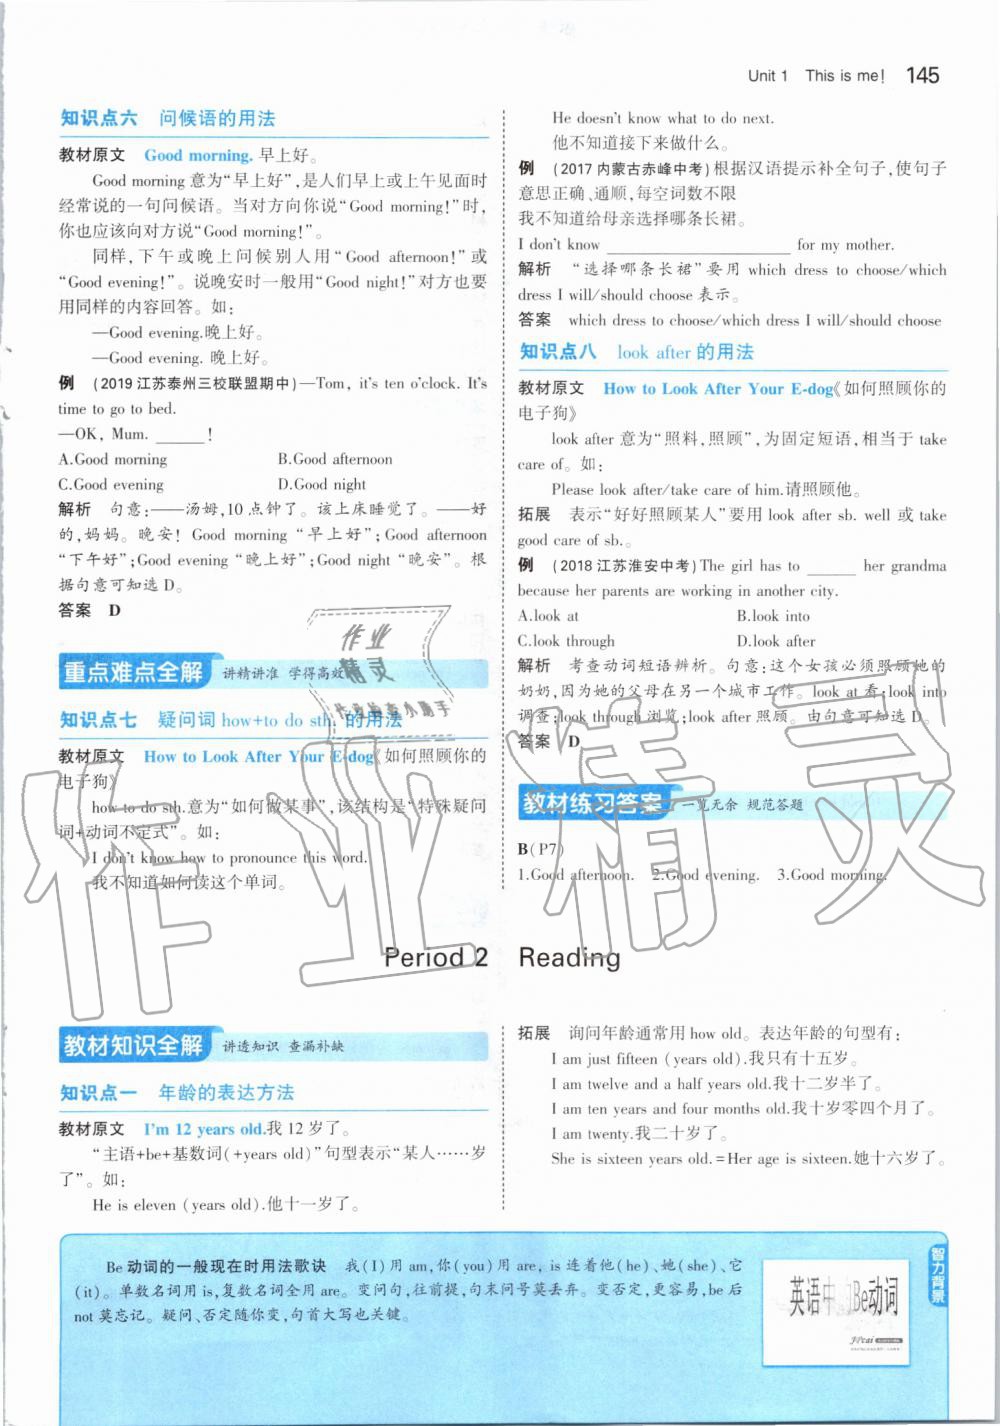 Unit 1 This is me! 145
知识点六 问候语的用法
教材原文 Good morning. 早上好。
Good morning 意为“早上好”,是人们早上或上午见面时
经常说的一句问候语。当对方向你说“Good morning!”时,
你也应该向对方说“Good morning!”。
同样,下午或晚上问候别人用“Good afternoon!”或
“Good evening!”。说晚安时一般用“Good night!”对方也要
用同样的内容回答。如:
—Good evening.晚上好。
—Good evening. 晚上好。
例 (2019江苏泰州三校联盟期中)—Tom, it's ten o'clock. It's
time to go to bed.
—OK, Mum. ______!
A.Good morning B.Good afternoon
C.Good evening D.Good night
解析 句意:——汤姆,10点钟了。该上床睡觉了。——好
的,妈妈。晚安! Good morning “早上好”;Good afternoon
“下午好”;Good evening “晚上好”;Good night “晚安”。根
据句意可知选D。
答案 D
重点难点全解 讲精讲准 学得高效
知识点七 疑问词how+to do sth. 的用法
教材原文 How to Look After Your E-dog《如何照顾你的
电子狗》
how to do sth.意为“如何做某事”,该结构是“特殊疑问
词+动词不定式”。如:
I don't know how to pronounce this word.
我不知道如何读这个单词。
He doesn't know what to do next.
他不知道接下来做什么。
例 (2017内蒙古赤峰中考)根据汉语提示补全句子,使句子
意思正确、通顺,每空词数不限
我不知道给母亲选择哪条长裙。
I don't know ____________________ for my mother.
解析 “选择哪条长裙”要用 which dress to choose/which
dress I will/should choose 表示。
答案 which dress to choose/which dress I will/should choose
知识点八 look after 的用法
教材原文 How to Look After Your E-dog《如何照顾你的
电子狗》
look after 意为“照料,照顾”,为固定短语,相当于 take
care of。如:
Please look after/take care of him.请照顾他。
拓展 表示“好好照顾某人”要用 look after sb. well 或 take
good care of sb.。
例 (2018江苏淮安中考)The girl has to ______ her grandma
because her parents are working in another city.
A.look at B.look into
C.look through D.look after
解析 考查动词短语辨析。句意:这个女孩必须照顾她的
奶奶,因为她的父母在另一个城市工作。look at 看;look into
调查;look through 浏览;look after 照顾。由句意可知选D。
答案 D
教材练习答案 一览无余 规范答题
B(P7)
1.Good afternoon. 2.Good evening. 3.Good morning.
作业精灵
作业
精灵
Period 2 Reading
教材知识全解 讲透知识 查漏补缺
知识点一 年龄的表达方法
教材原文 I'm 12 years old.我12岁了。
“主语+be+基数词(+years old)”句型表示“某人……岁
了”。如:
He is eleven (years old).他十一岁了。
拓展 询问年龄通常用 how old。表达年龄的句型有:
I am just fifteen (years old).我只有十五岁。
I am twelve and a half years old.我十二岁半了。
I am ten years and four months old.我十岁零四个月了。
I am twenty.我二十岁了。
She is sixteen years old.=Her age is sixteen.她十六岁了。
Be动词的一般现在时用法歌诀 我(I)用am,你(you)用are, is连着他(he)、她(she)、它
(it)。单数名词用is,复数名词全用are。变问句,往前提,句末问号莫丢弃。变否定,更容易,be后
not莫忘记。疑问、否定随你变,句首大写也关键。
英语中的Be动词
智力背景